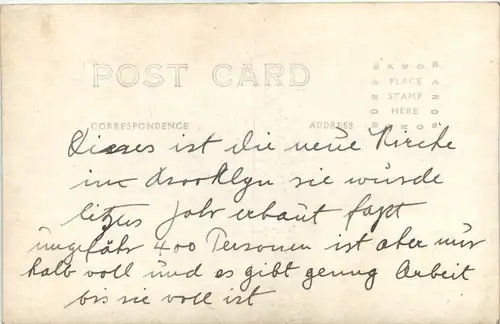 POST CARD
AZO AZO
PLACE
STAMP
HERE
CORRESPONDENCE ADDRESS
Dieses ist die neue Kirche
im Brooklyn sie wurde
letzes Jahr erbaut faßt
ungefähr 400 Personen ist aber nur
halb voll und es gibt genug Arbeit
bis sie voll ist